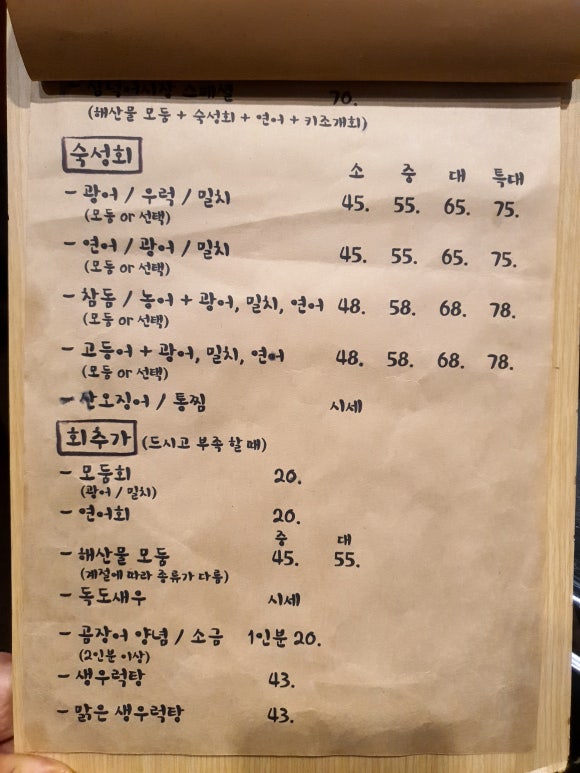 스페셜 70.
(해산물 모둠 + 숙성회 + 연어 + 키조개회)
숙성회
소 중 대 특대
- 광어 / 우럭 / 밀치 45. 55. 65. 75.
(모둠 or 선택)
- 연어 / 광어 / 밀치 45. 55. 65. 75.
(모둠 or 선택)
- 참돔 / 농어 + 광어, 밀치, 연어 48. 58. 68. 78.
(모둠 or 선택)
- 고등어 + 광어, 밀치, 연어 48. 58. 68. 78.
(모둠 or 선택)
- 산오징어 / 통찜 시세
회추가 (드시고 부족 할 때)
- 모둠회 20.
(광어 / 밀치)
- 연어회 20.
중 대
- 해산물 모둠 45. 55.
(계절에 따라 종류가 다름)
- 독도새우 시세
- 곰장어 양념 / 소금 1인분 20.
(2인분 이상)
- 생우럭탕 43.
- 맑은 생우럭탕 43.